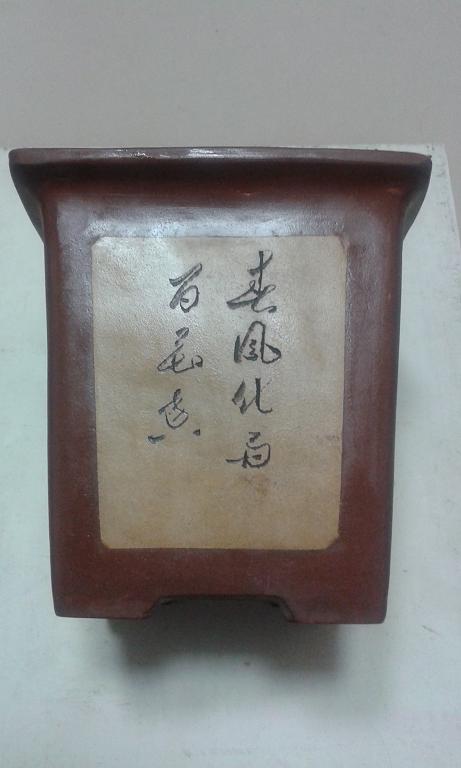 春風化雨
百花香